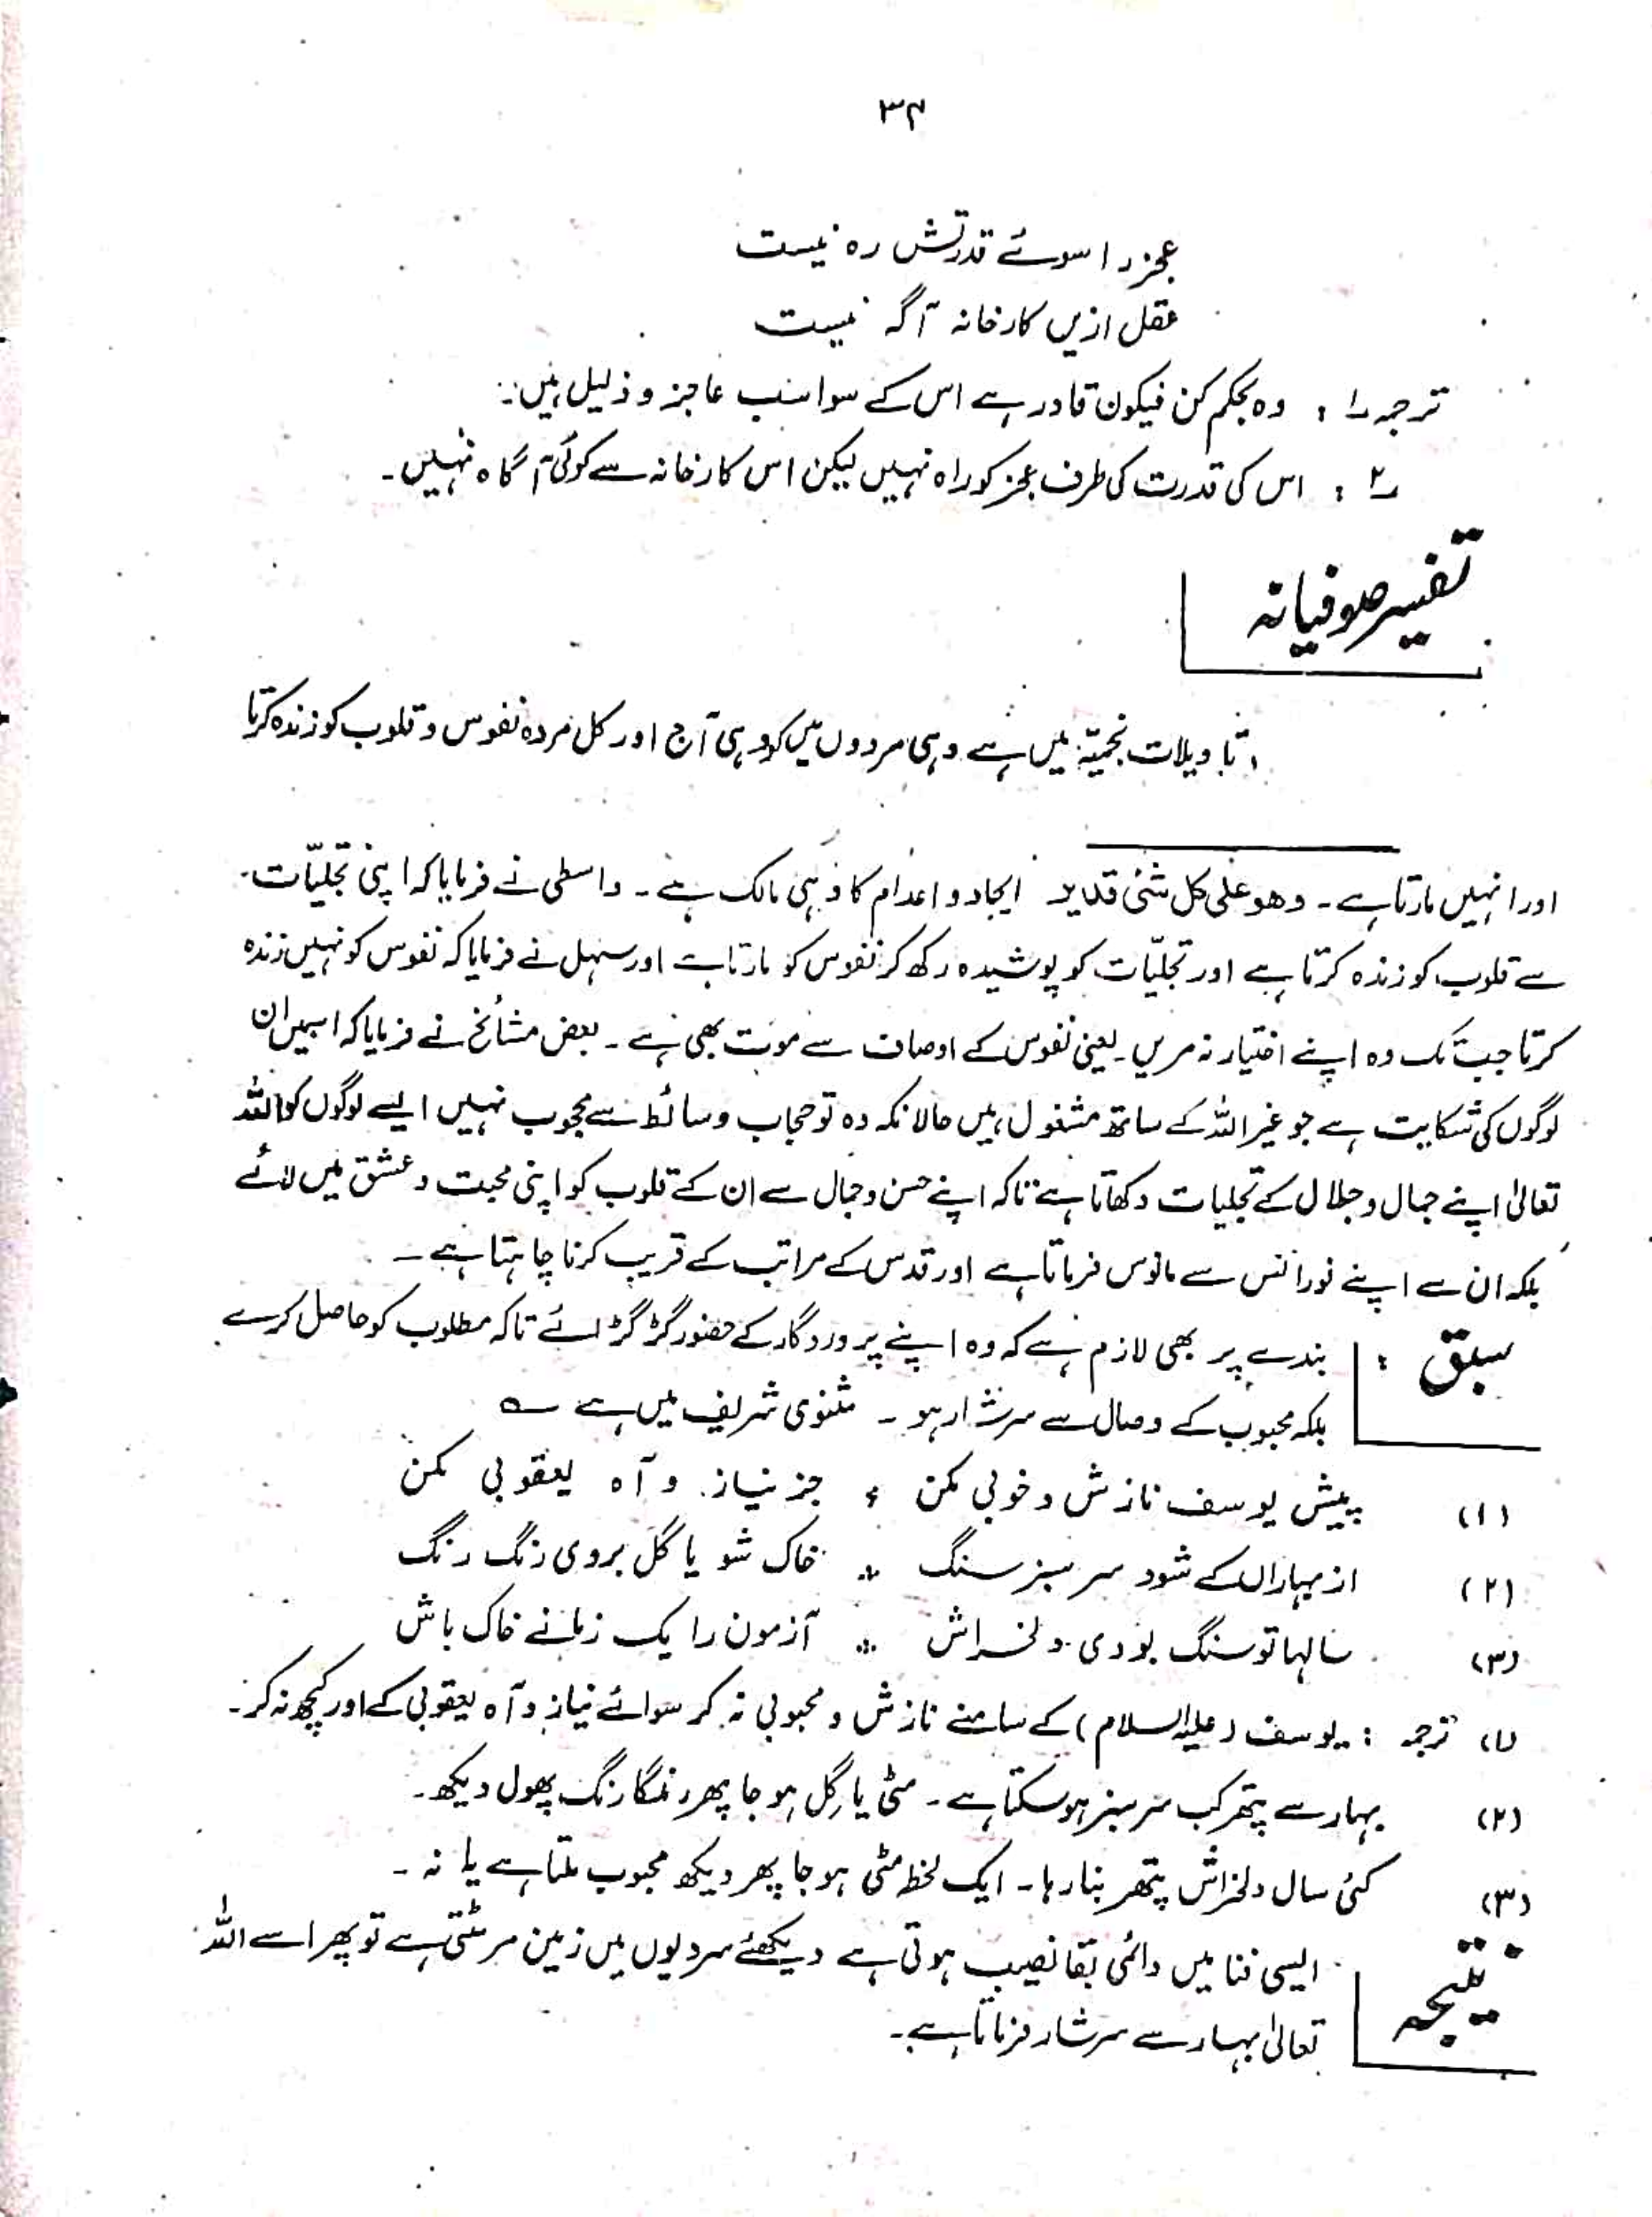 ۳۴
عجز را سوئے قدرتش رہ نیست
عقل ازیں کارخانہ آگہ نیست
ترجمہ ۱ : وہ بحکم کن فیکون قادر ہے اس کے سوا سب عاجز و ذلیل ہیں۔
۲ : اس کی قدرت کی طرف عجز کو راہ نہیں لیکن اس کارخانہ سے کوئی آگاہ نہیں۔
تفسیر صوفیانہ
تاویلات نجمیّہ میں ہے وہی مردوں میں کو وہی آج اور کل مردہ نفوس و قلوب کو زندہ کرتا
اور انہیں مارتا ہے۔ وھو علی کل شئی قدیر ایجاد و اعدام کا وہی مالک ہے۔ واسطی نے فرمایا کہ اپنی تجلیّات
سے قلوب کو زندہ کرتا ہے اور تجلیّات کو پوشیدہ رکھ کر نفوس کو مارتا ہے اور سہل نے فرمایا کہ نفوس کو نہیں زندہ
کرتا جب تک وہ اپنے اختیار نہ مریں۔ یعنی نفوس کے اوصاف سے موت بھی ہے۔ بعض مشائخ نے فرمایا کہ اسمیں ان
لوگوں کی شکایت ہے جو غیر اللہ کے ساتھ مشغول ہیں حالانکہ وہ تو حجاب وسائط سے محجوب نہیں ایسے لوگوں کو اللہ
تعالیٰ اپنے جمال و جلال کے تجلیات دکھاتا ہے تاکہ اپنے حسن و جمال سے ان کے قلوب کو اپنی محبت و عشق میں لائے
بلکہ ان سے اپنے نور انس سے مانوس فرماتا ہے اور قدس کے مراتب کے قریب کرنا چاہتا ہے۔
سبق : بندے پر بھی لازم ہے کہ وہ اپنے پروردگار کے حضور گڑگڑائے تاکہ مطلوب کو حاصل کرے
بلکہ محبوب کے وصال سے سرشار ہو۔ مثنوی شریف میں ہے ؎
(۱) پیش یوسف نازش و خوبی مکن ؛ جز نیاز و آہ یعقوبی مکن
(۲) از بہاراں کے شود سرسبز سنگ ؛ خاک شو یا گل بروی رنگ رنگ
(۳) سالہا تو سنگ بودی دلخراش ؛ آزمون را یک زمانے خاک باش
(۱) ترجمہ : یوسف (علیہ السلام) کے سامنے نازش و محبوبی نہ کر سوائے نیاز و آہ یعقوبی کے اور کچھ نہ کر۔
(۲) بہار سے پتھر کب سرسبز ہو سکتا ہے۔ مٹی یا گِل ہو جا پھر رنگا رنگ پھول دیکھ۔
(۳) کئی سال دلخراش پتھر بنا رہا۔ ایک لحظ مٹی ہو جا پھر دیکھ محبوب ملتا ہے یا نہ۔
نتیجہ ایسی فنا میں دائمی بقا نصیب ہوتی ہے دیکھئے سردیوں میں زمین مر مٹتی ہے تو پھر اسے اللہ
تعالیٰ بہار سے سرشار فرماتا ہے۔